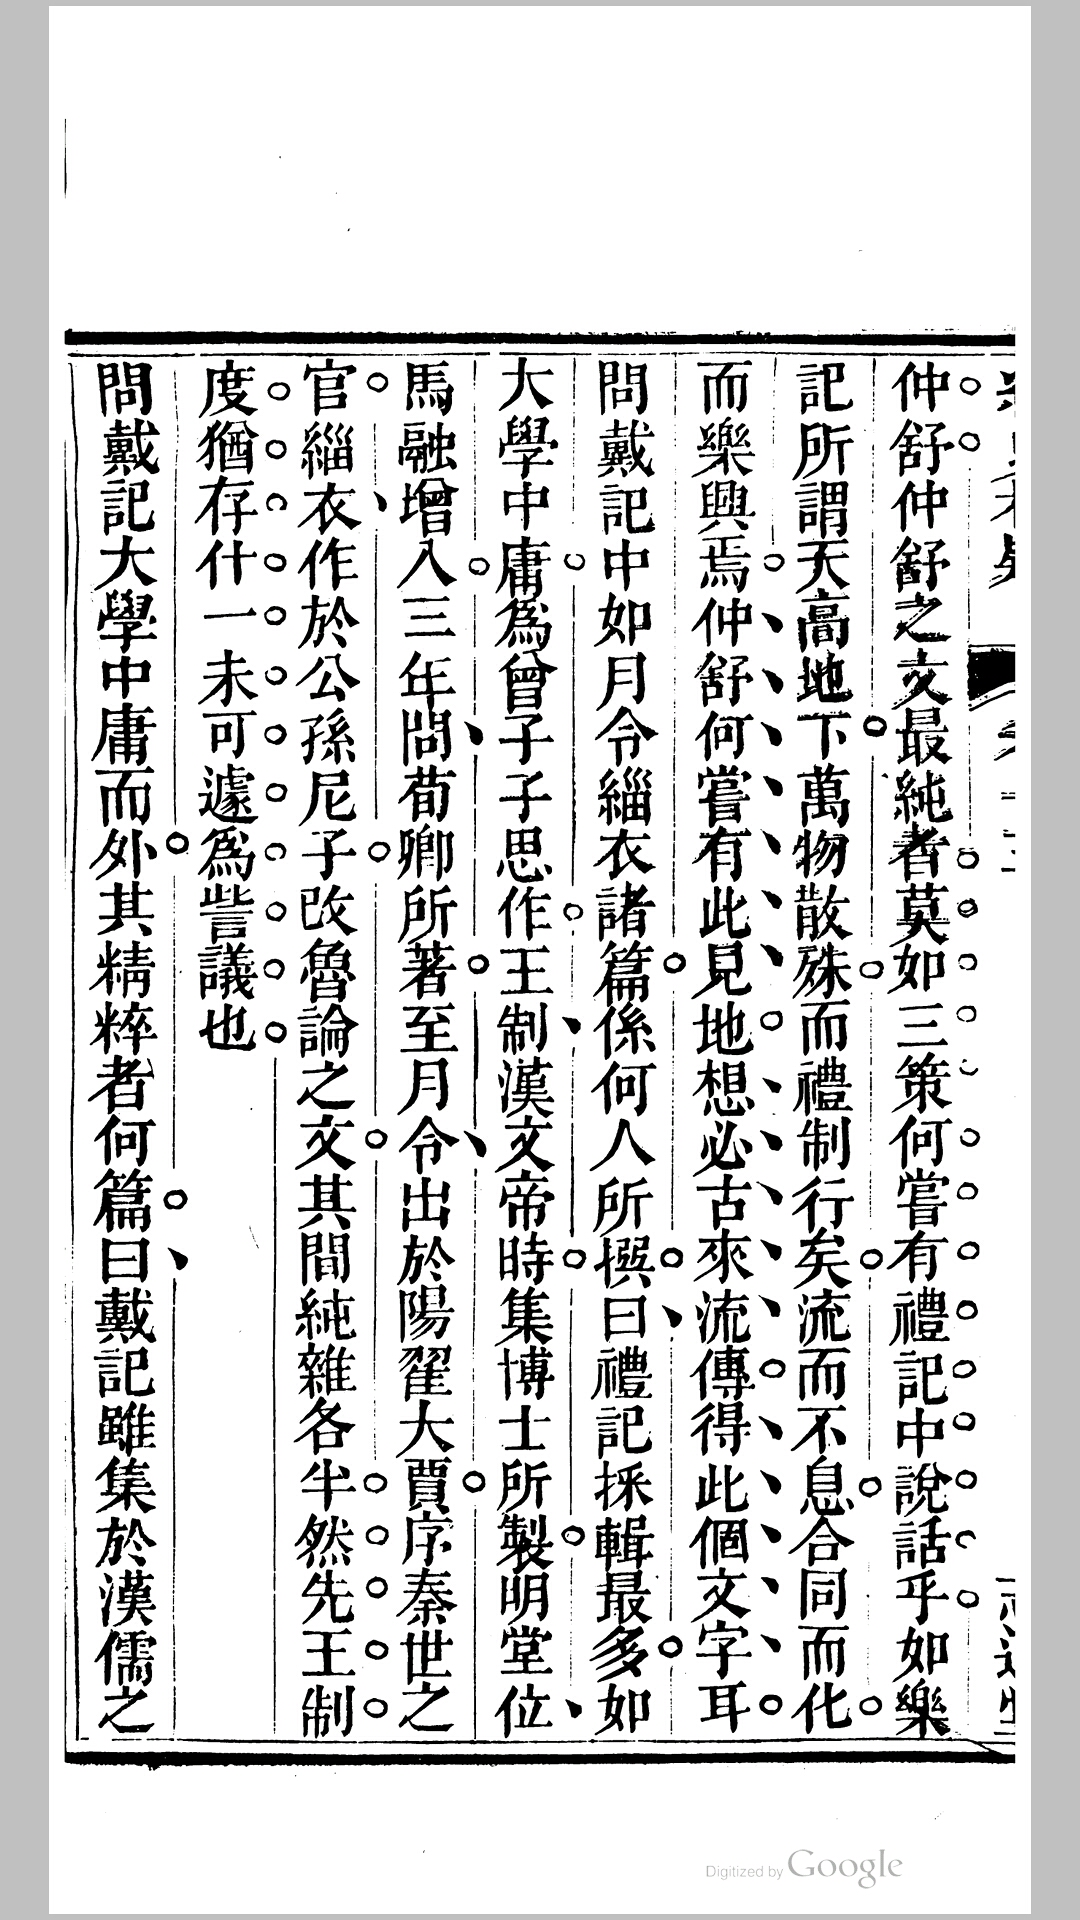 仲舒仲舒之文最純者莫如三策何嘗有禮記中說話乎如樂
記所謂天高地下萬物散殊而禮制行矣流而不息合同而化
而樂興焉仲舒何嘗有此見地想必古來流傳得此個文字耳
問戴記中如月令緇衣諸篇係何人所撰曰禮記採輯最多如
大學中庸為曾子子思作王制漢文帝時集博士所製明堂位
馬融增入三年問荀卿所著至月令出於陽翟大賈序秦世之
官緇衣作於公孫尼子改魯論之文其間純雜各半然先王制
度猶存什一未可遽為訾議也
問戴記大學中庸而外其精粹者何篇曰戴記雖集於漢儒之
Digitized by Google